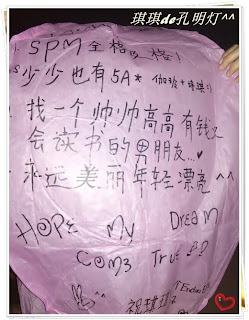 琪琪de孔明灯^^
SPM全格及格!
少少也有5A* 伽玲+琪琪
找一个帅帅高高有钱又
会读书的男朋友...♥
永远美丽年轻漂亮^^
HOPE My DREAM
COM3 True
祝琪琪